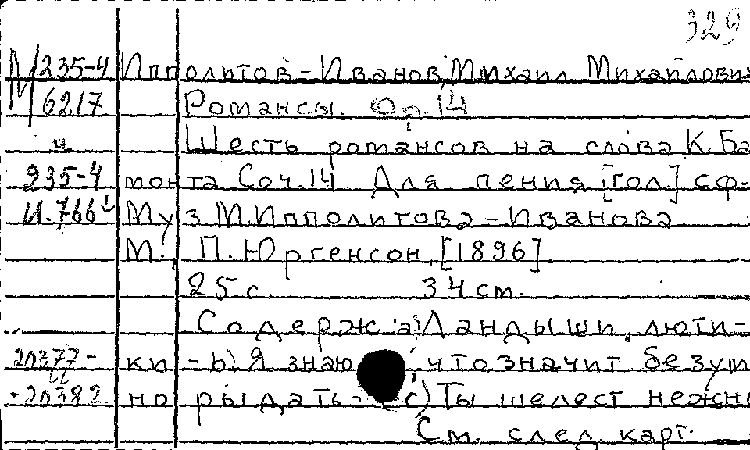 329
М 235-4 Ипполитов-Иванов, Михаил Михайлович
6217 Романсы. Op. 14
и Шесть романсов на слова К. Ба
235-4 монта Соч. 14 Для пения [гол.] с ф-
И.766 Муз М. Ипполитова-Иванова
М., П. Юргенсон, [1896].
25 с. 34 см.
Содерж: а) Ландыши, люти-
20377- ки - b) Я знаю , что значит безум
20382 но рыдать - c) Ты шелест нежн
См. след. карт.